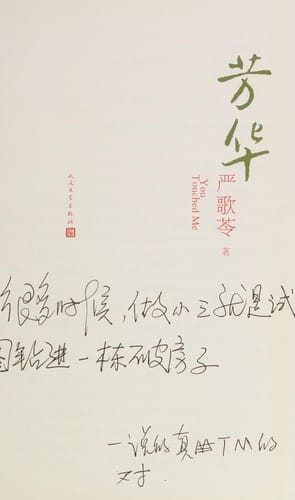 芳华
严歌苓 著
You
Touched Me
人民文学出版社
很多时候,做小三就是试
图钻进一栋破房子
一说的真毌TM的
对.